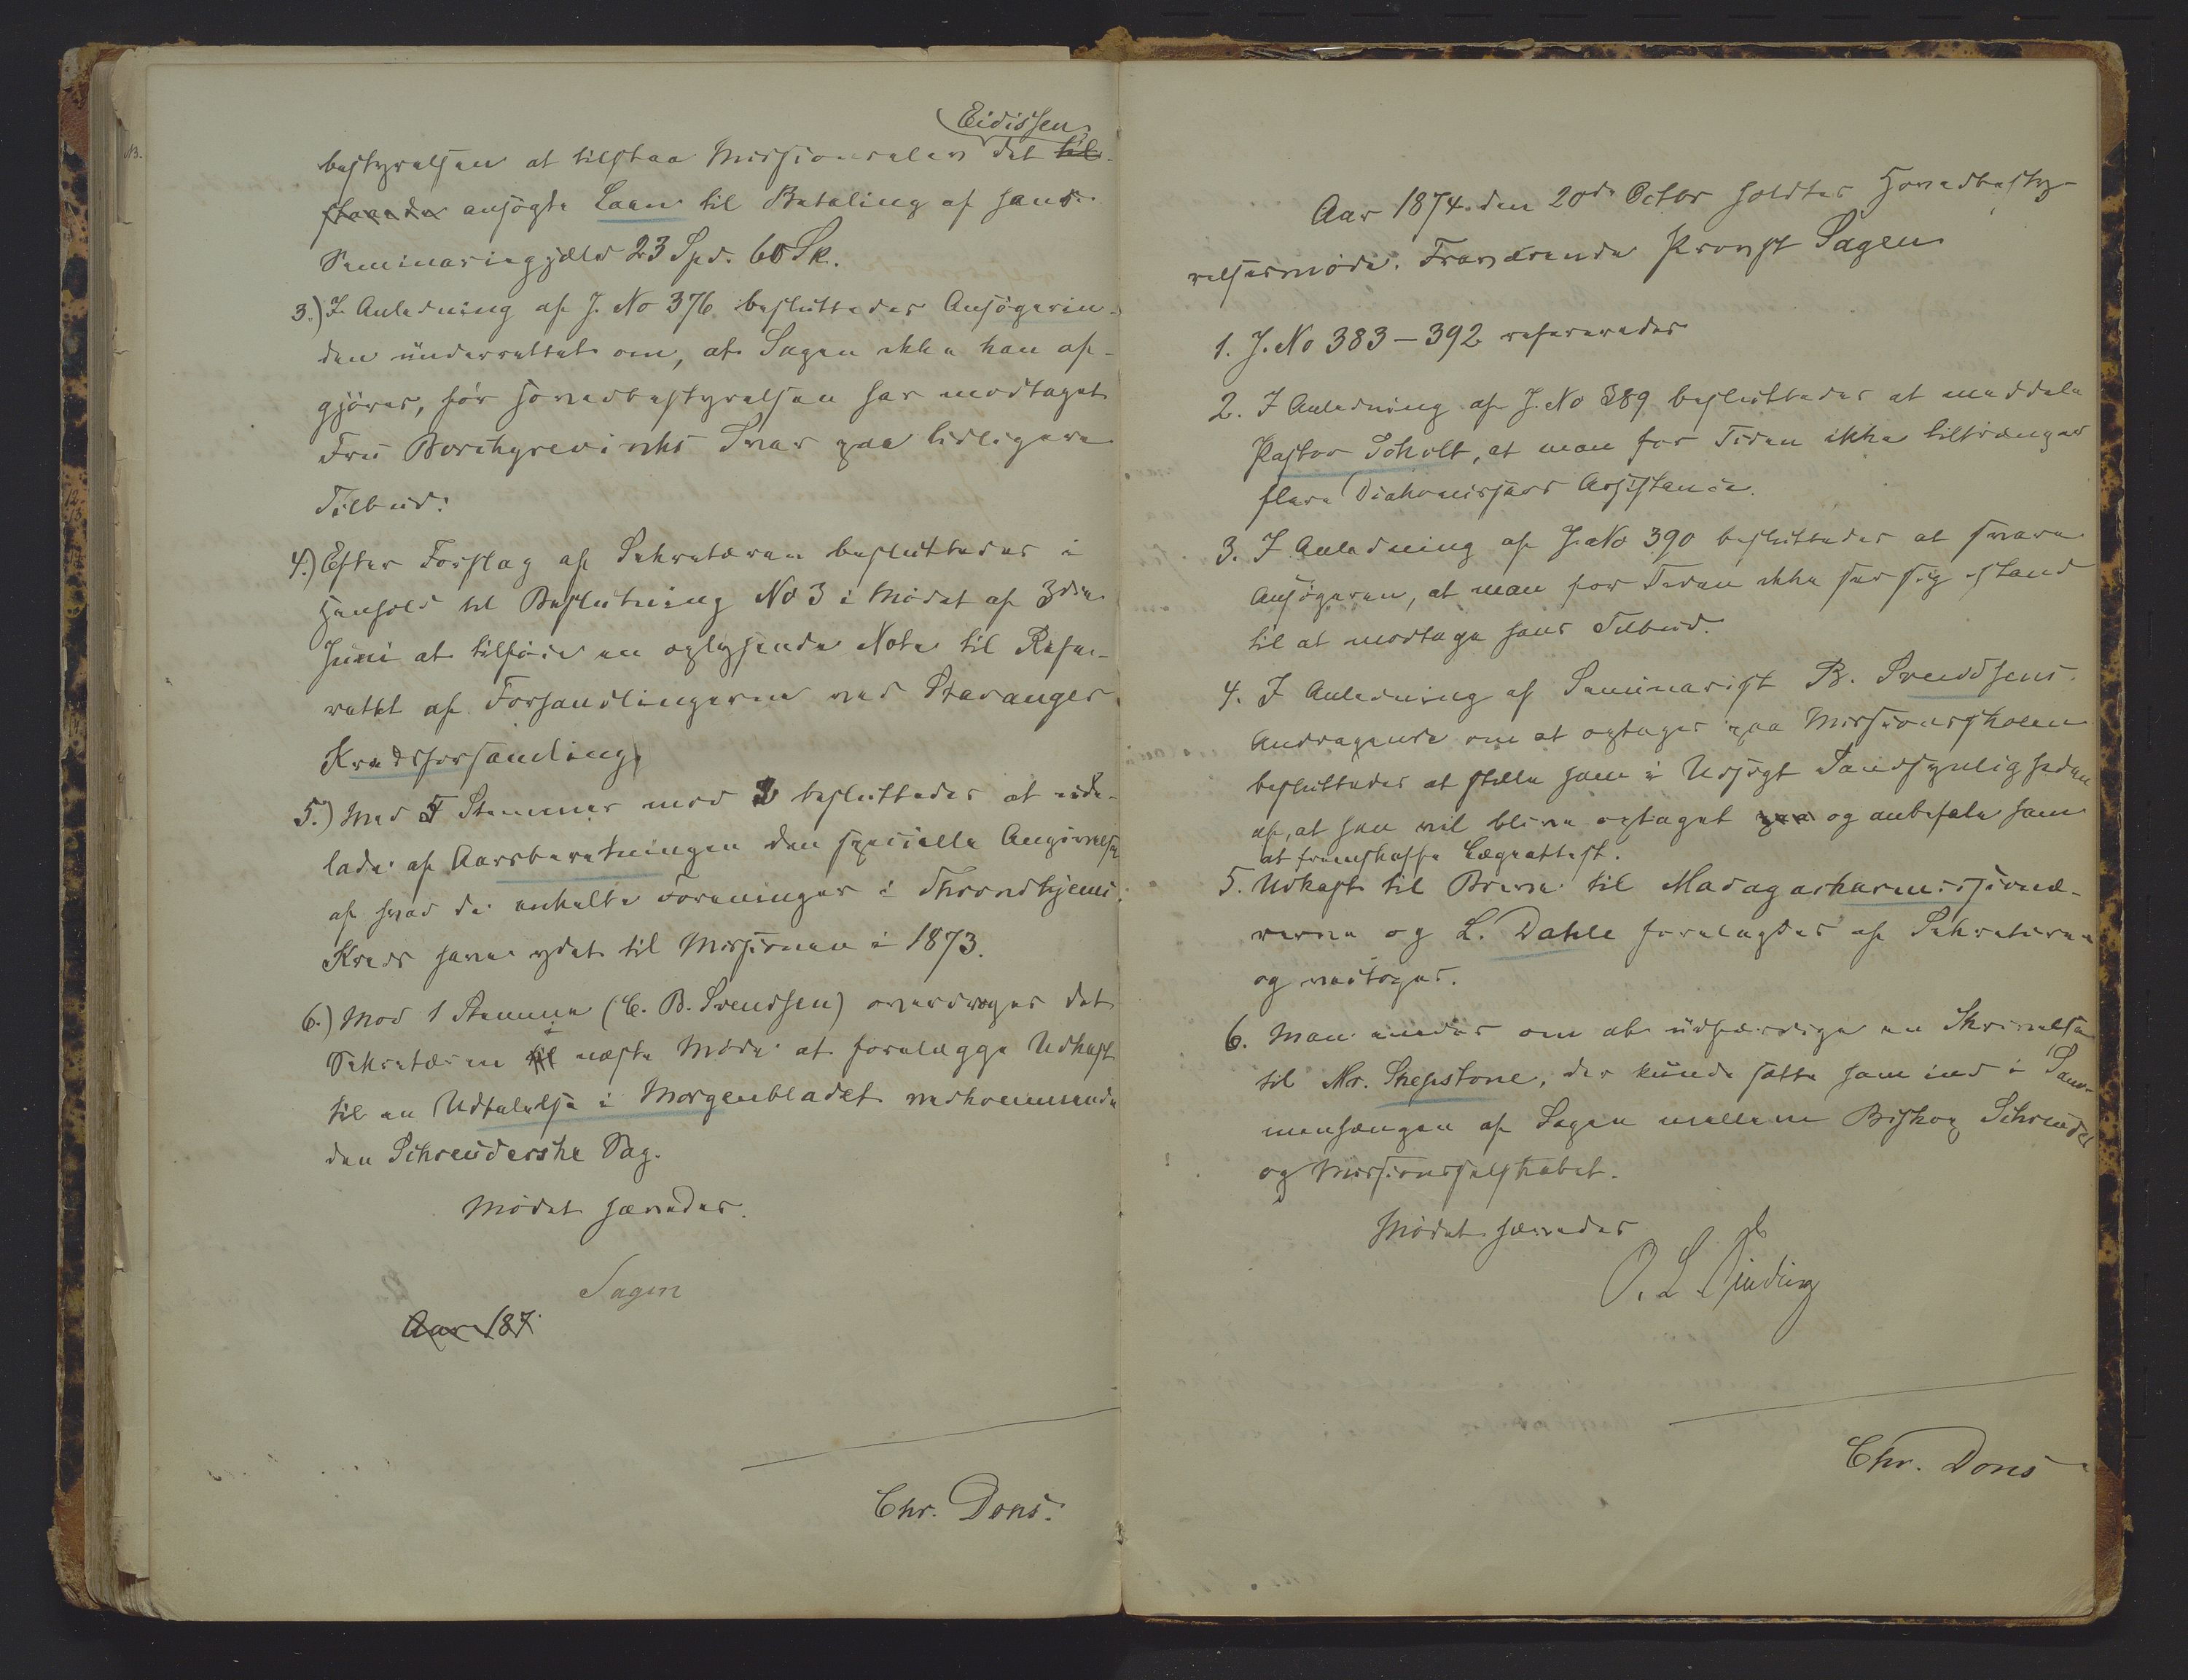 Eidissen
bestyrelsen at tilstaa Missionselev det til-
staaede ansøgte Laan til Betaling af hans
Seminariegjæld 23 Spd. 60 Sk.
3.) I Anledning af J. No 376 besluttedes Ansøgerin-
den underrettet om, at Sagen ikke kan af-
gjøres, før Hovedbestyrelsen har modtaget
Fru Borchgrevinks Svar paa tidligere
Tilbud.
4.) Efter Forslag af Sekretæren besluttedes i
Henhold til Beslutning No 3 i Mødet af 3die
Juni at tilføie en oplysende Note til Refe-
ratet af Forhandlingerne ved Stavanger
Kredsforsamling.
5.) Med 5 Stemmer mod 2 besluttedes at ude-
lade af Aarsberetningen den specielle Angivelse
af hvad de enkelte Foreninger i Throndhjems
Kreds have ydet til Missionen i 1873.
6.) Mod 1 Stemme (C. B. Svendsen) overdroges det
Sekretæren til i næste Møde at forelægge Udkast
til en Udtalelse i Morgenbladet vedkommende
den Schreuderske Sag.
Mødet hævedes.
Sagen
Aar 187
Chr. Dons.
Aar 1874 den 20de Octbr holdtes Hovedbesty-
relsesmøde. Fraværende Provst Sagen
1. J. No 383 – 392 refereredes
2. I Anledning af J. No 389 besluttedes at meddele
Pastor Scholt, at man for Tiden ikke tiltrænger
flere Diakonissers Assistance.
3. I Anledning af J. No 390 besluttedes at svare
Ansøgeren, at man for Tiden ikke ser sig istand
til at modtage hans Tilbud.
4. I Anledning af Seminarist B. Svendsens
Andragende om at optages paa Missionsskolen
besluttedes at stille ham i Udsigt Sandsynligheden
af, at han vil blive optaget paa og anbefale ham
at fremskaffe Lægeattest.
5. Udkast til Breve til Madagaskarmissionæ-
rerne og L. Dahle forelagdes af Sekretæren
og vedtoges.
6. Man enedes om at udfærdige en Skrivelse
til Mr. Shepstone, der kunde sætte ham ind i Sam-
menhængen af Sagen mellem Biskop Schreuder
og Missionsselskabet.
Mødet hævedes
O. L. Sinding
Chr. Dons